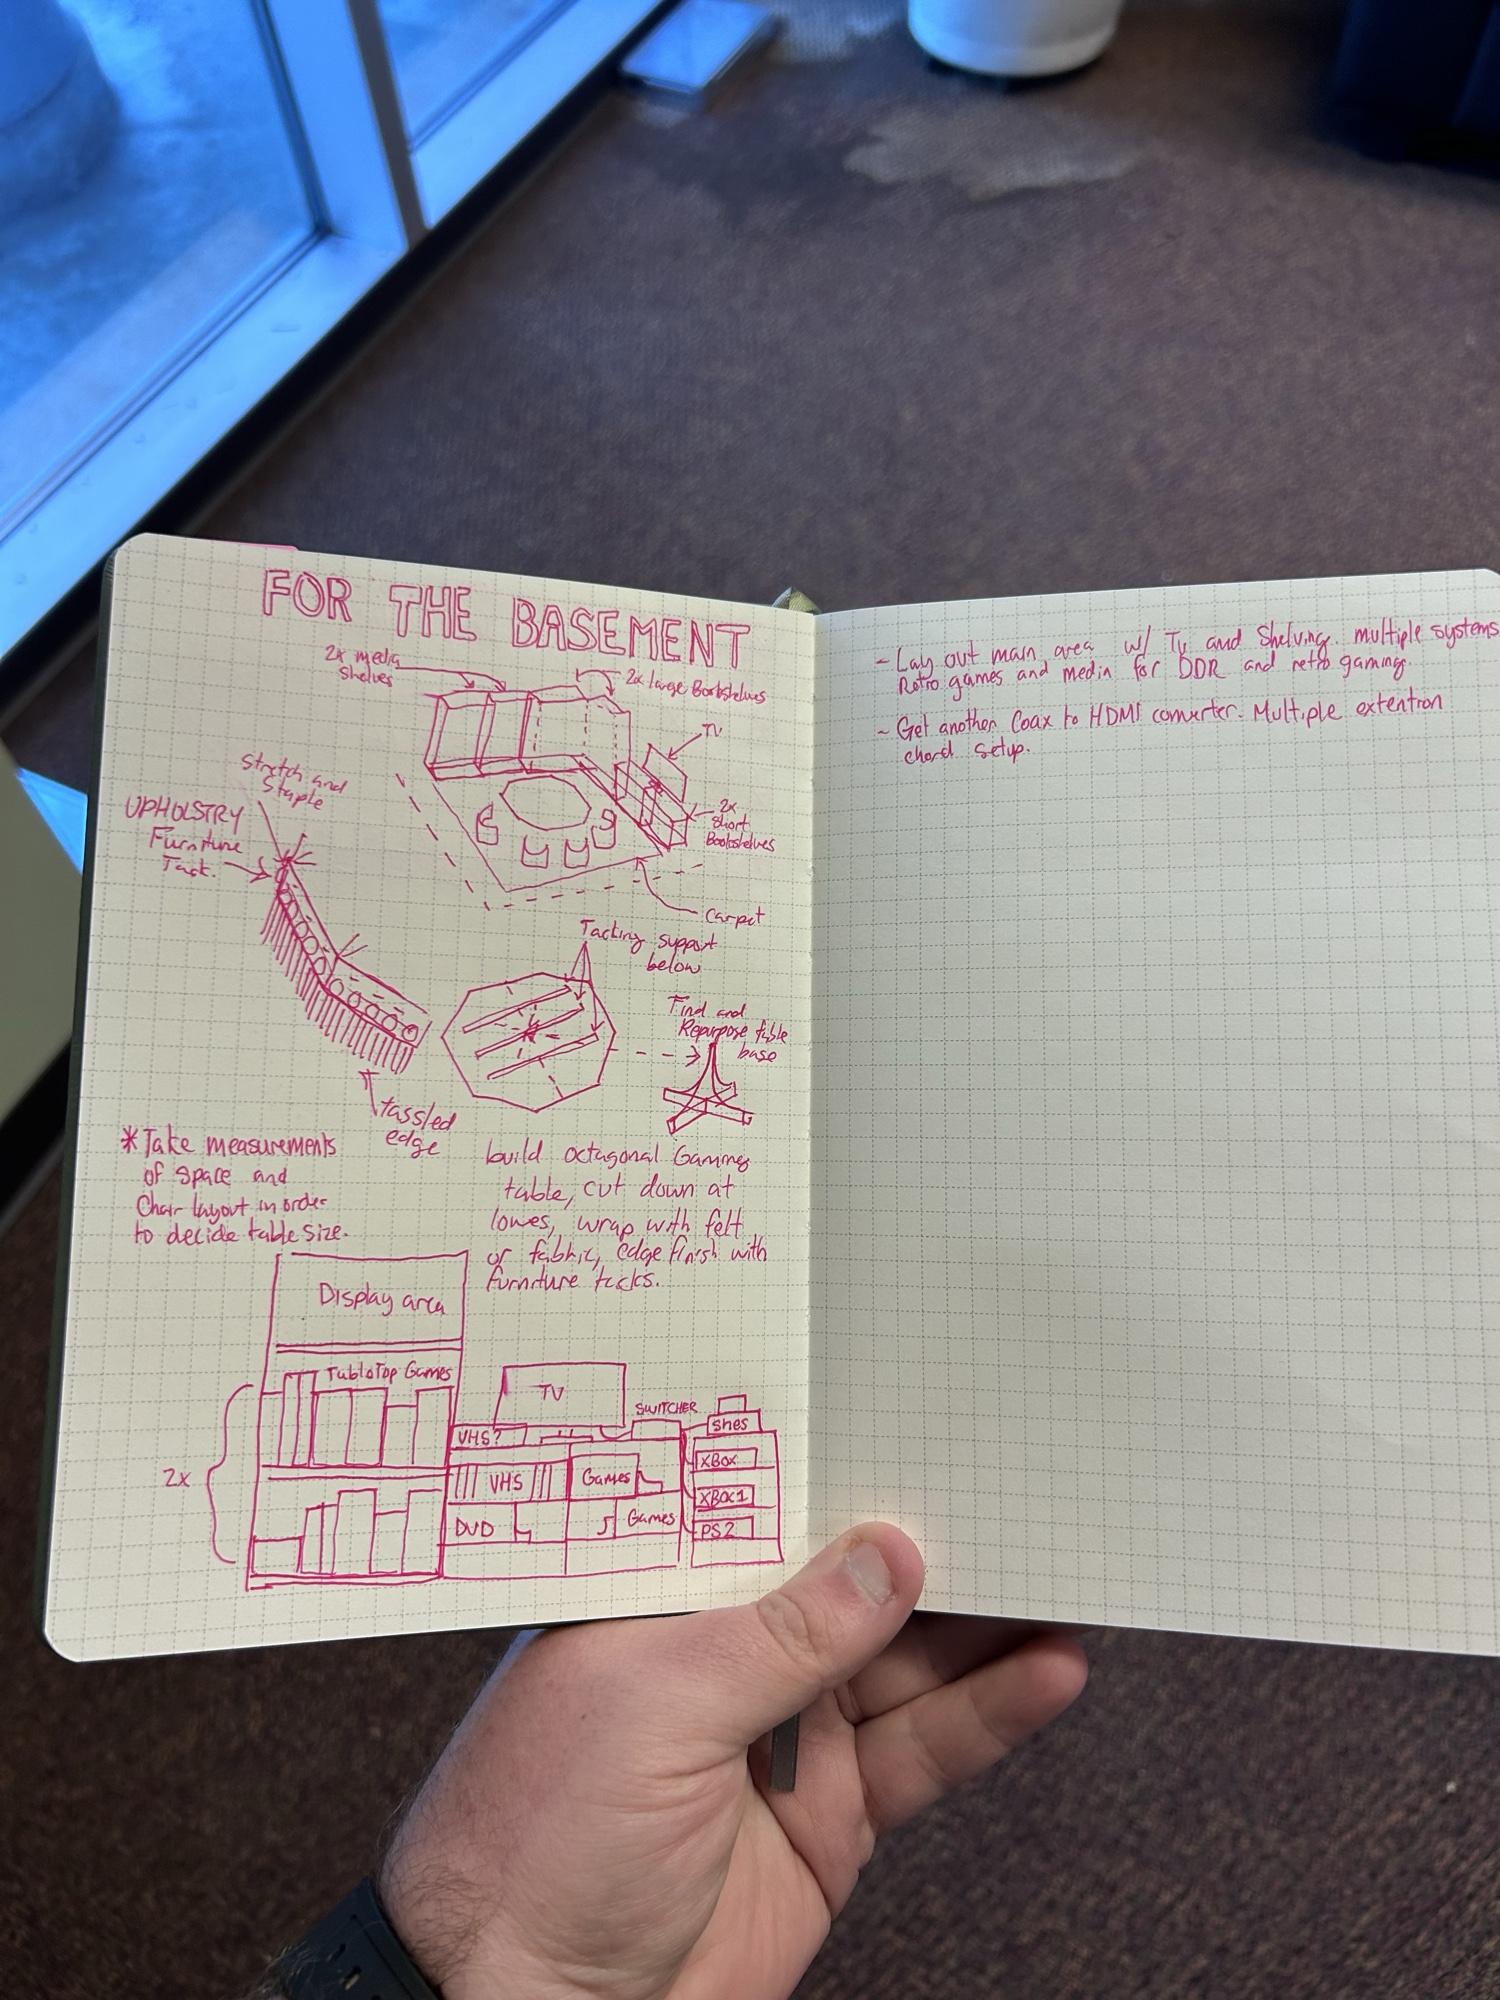 FOR THE BASEMENT
2x media
shelves
2x large Bookshelves
TV
2x
Short
Bookshelves
Carpet
Stretch and
Staple
UPHOLSTRY
Furniture
Tack.
tassled
edge
Tacking support
below
Find and
Repurpose table
base
*Take measurements
of Space and
Chair layout in order
to decide table size.
build octagonal Gaming
table, cut down at
lowes, wrap with felt
or fabric, edge finish with
furniture tacks.
Display area
TableTop Games
2x
TV
SWITCHER
VHS?
VHS
DVD
Games
Games
SNES
XBOX
XBOX1
PS2
- Lay out main area w/ Tv and Shelving. multiple systems
Retro games and media for DDR and retro gaming.
- Get another Coax to HDMI converter. Multiple extention
chord setup.